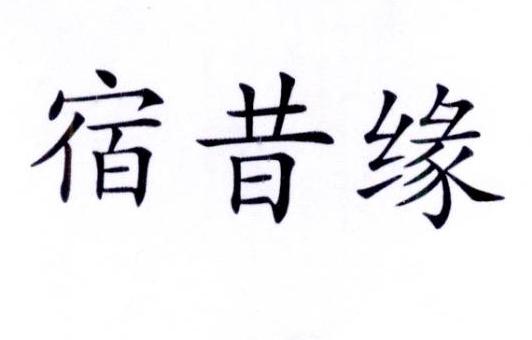 宿昔缘